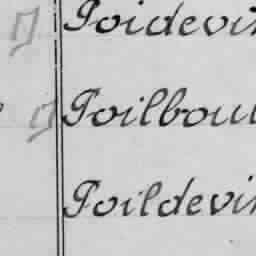 Poidevin
Poilbou
Poildevin